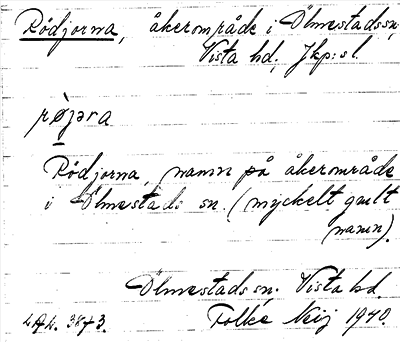 Rödjorna, åkerområde i Ölmestads sn,
Vista hd, Jkp:s l.
rö̀jəra
Rödjorna, namn på åkerområde
i Ölmestads sn. (mycket gult
namn).
Ölmestads sn. Vista hd.
Folke Neij 1940.